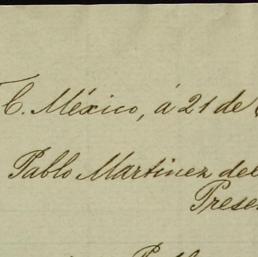 C. México, á 21 de
Pablo Martinez del